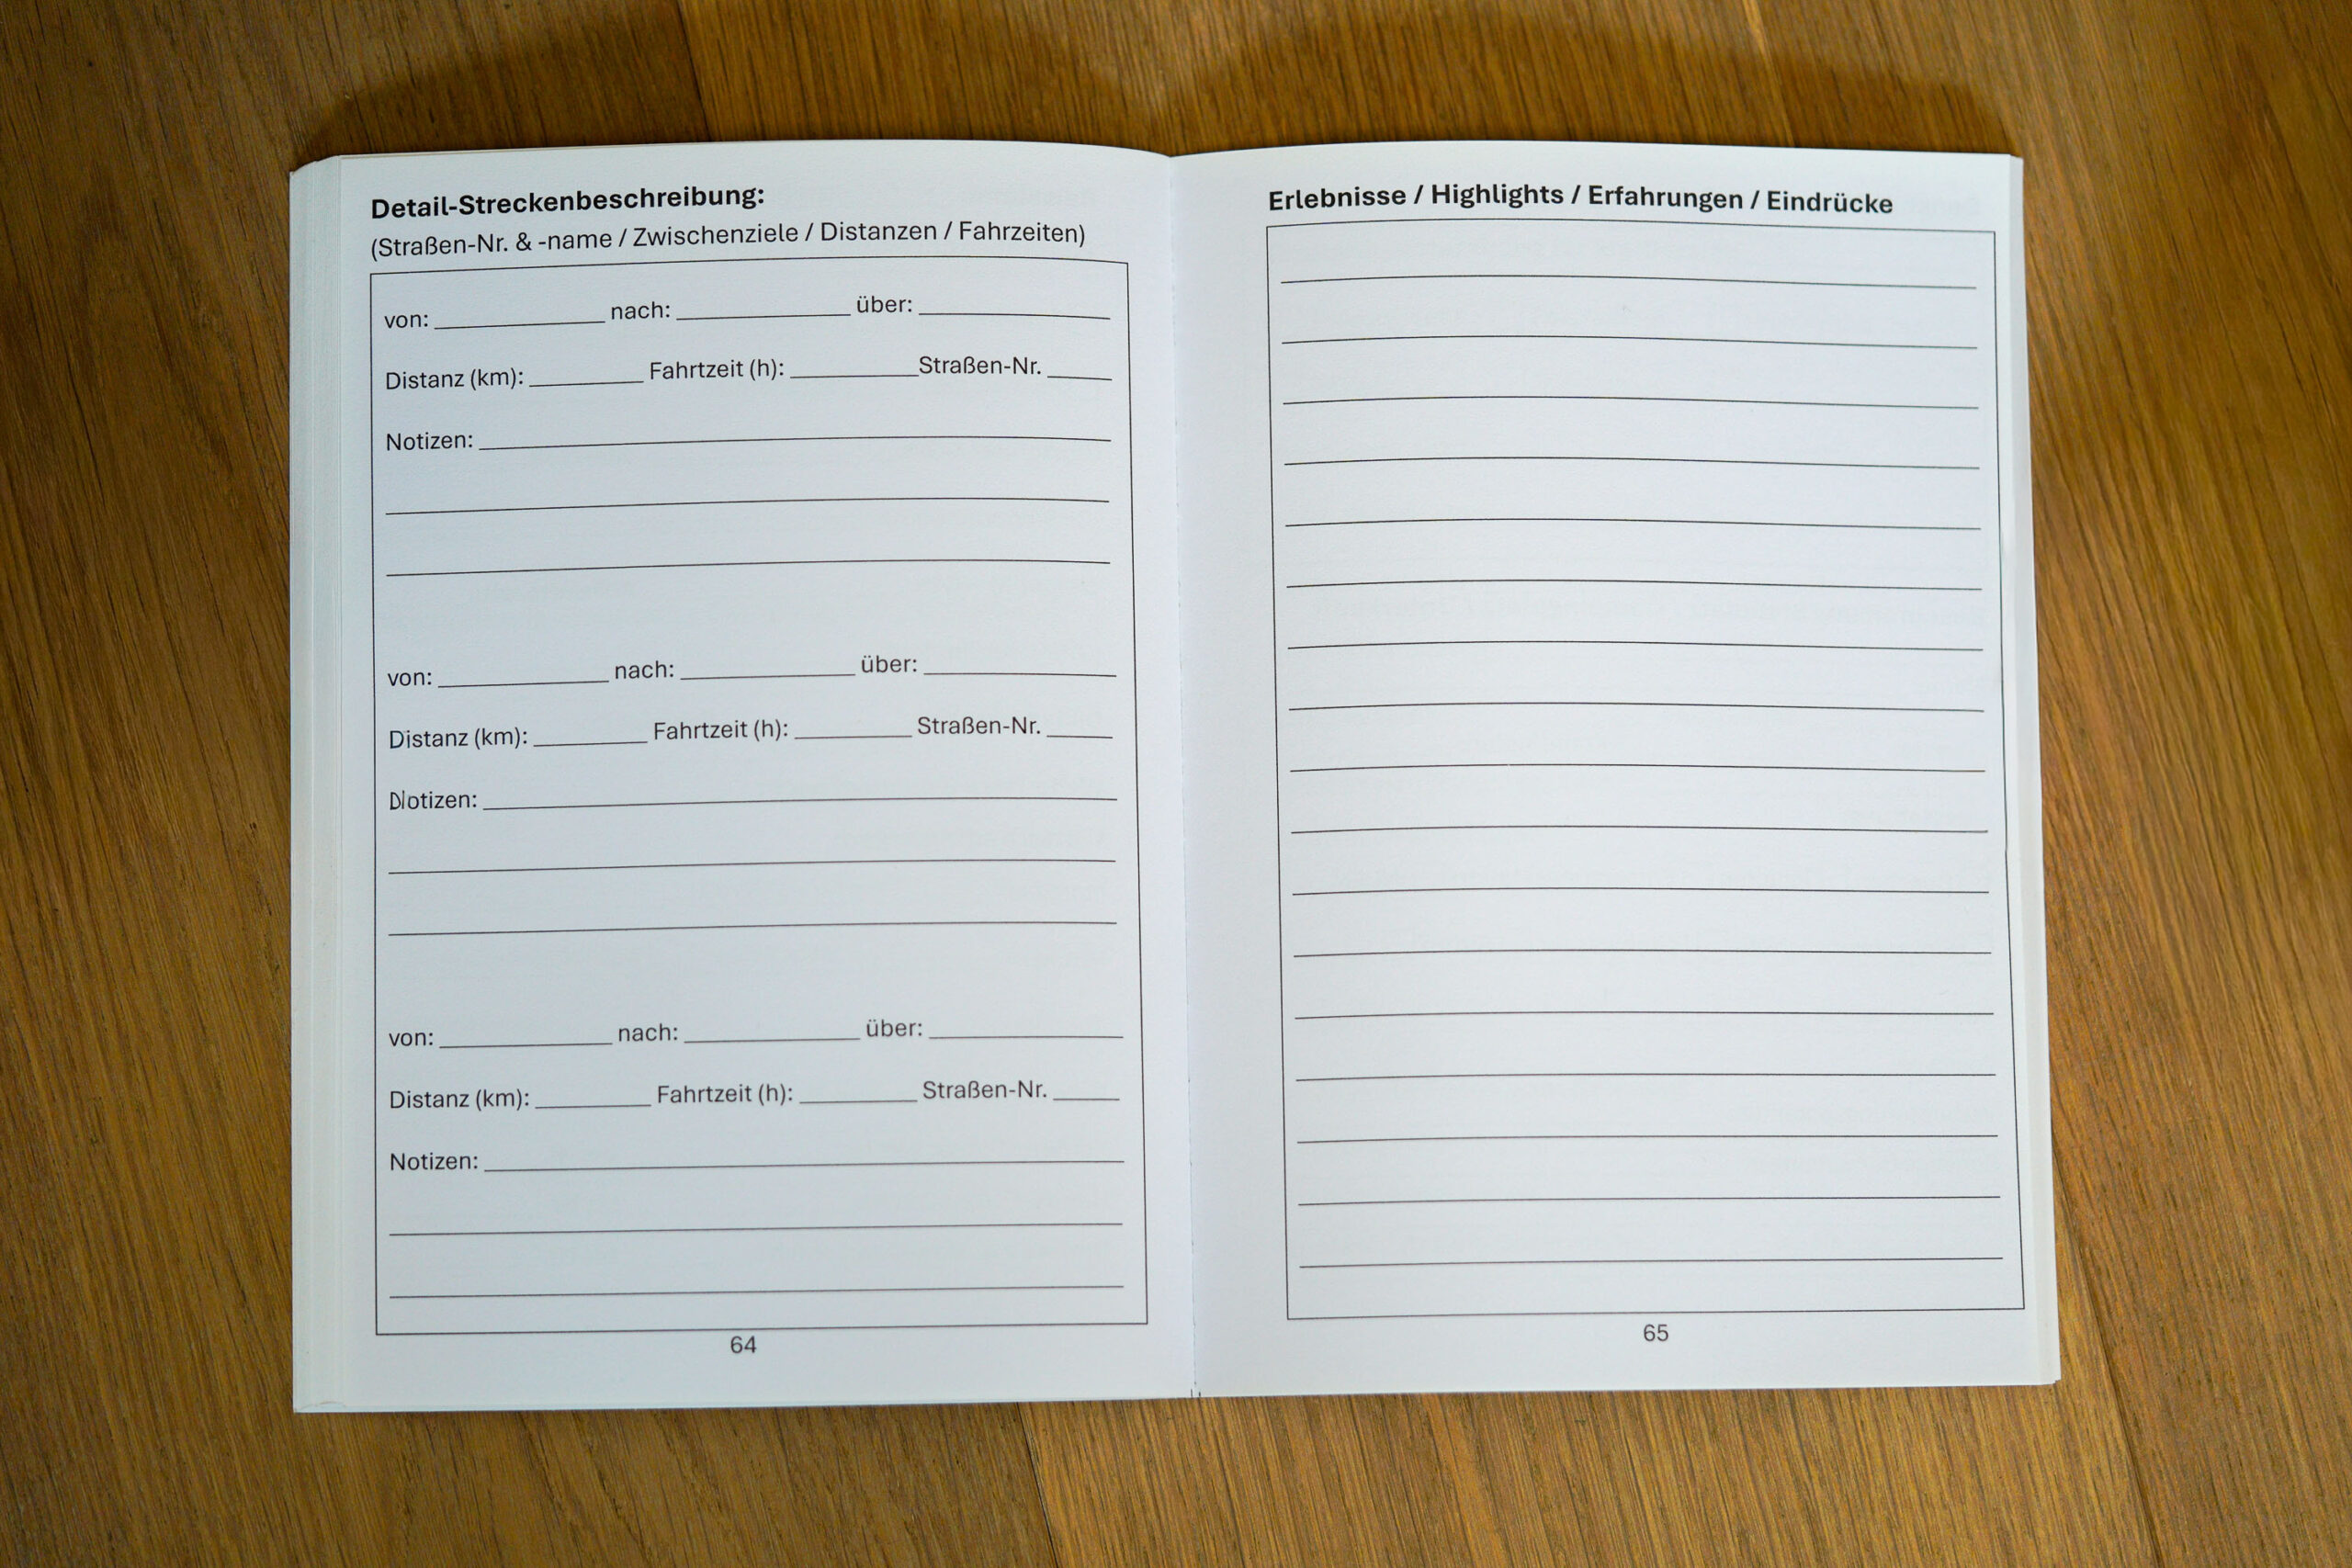 Detail-Streckenbeschreibung:
(Straßen-Nr. & -name / Zwischenziele / Distanzen / Fahrzeiten)
von: nach: über:
Distanz (km): Fahrtzeit (h): Straßen-Nr.
Notizen:
von: nach: über:
Distanz (km): Fahrtzeit (h): Straßen-Nr.
Notizen:
von: nach: über:
Distanz (km): Fahrtzeit (h): Straßen-Nr.
Notizen:
64
Erlebnisse / Highlights / Erfahrungen / Eindrücke
65